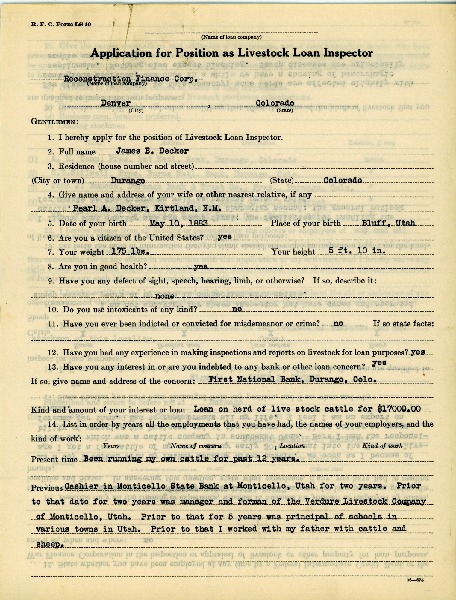 R. F. C. Form
(Name of loan company)
Application for Position as Livestock Loan Inspector
Reconstruction Finance Corp.
(Name of loan company)
Denver , Colorado
(City) (State)
GENTLEMEN:
1. I hereby apply for the position of Livestock Loan Inspector.
2. Full name James B. Decker
3. Residence (house number and street)
(City or town) Durango (State) Colorado
4. Give name and address of your wife or other nearest relative, if any
Pearl A. Decker, Kirtland, N.M.
5. Date of your birth May 10, 1883 Place of your birth Bluff, Utah
6. Are you a citizen of the United States? yes
7. Your weight 175 lbs. Your height 5 ft. 10 in.
8. Are you in good health? yes
9. Have you any defect of sight, speech, hearing, limb, or otherwise? If so, describe it:
none
10. Do you use intoxicants of any kind? no
11. Have you ever been indicted or convicted for misdemeanor or crime? no If so state facts:
12. Have you had any experience in making inspections and reports on livestock for loan purposes? yes
13. Have you any interest in or are you indebted to any bank or other loan concern? yes
If so, give name and address of the concern: First National Bank, Durango, Colo.
Kind and amount of your interest or loan Loan on herd of live stock cattle for $17000.00
14. List in order by years all the employments that you have had, the names of your employers, and the
kind of work:
Years Name of concern Location Kind of work
Present time Been running my own cattle for past 12 years.
Previous Cashier in Monticello State Bank at Monticello, Utah for two years. Prior
to that date for two years was manager and forman of the Verdure Livestock Company
of Monticello, Utah. Prior to that for 5 years was principal of schools in
various towns in Utah. Prior to that I worked with my father with cattle and
sheep.